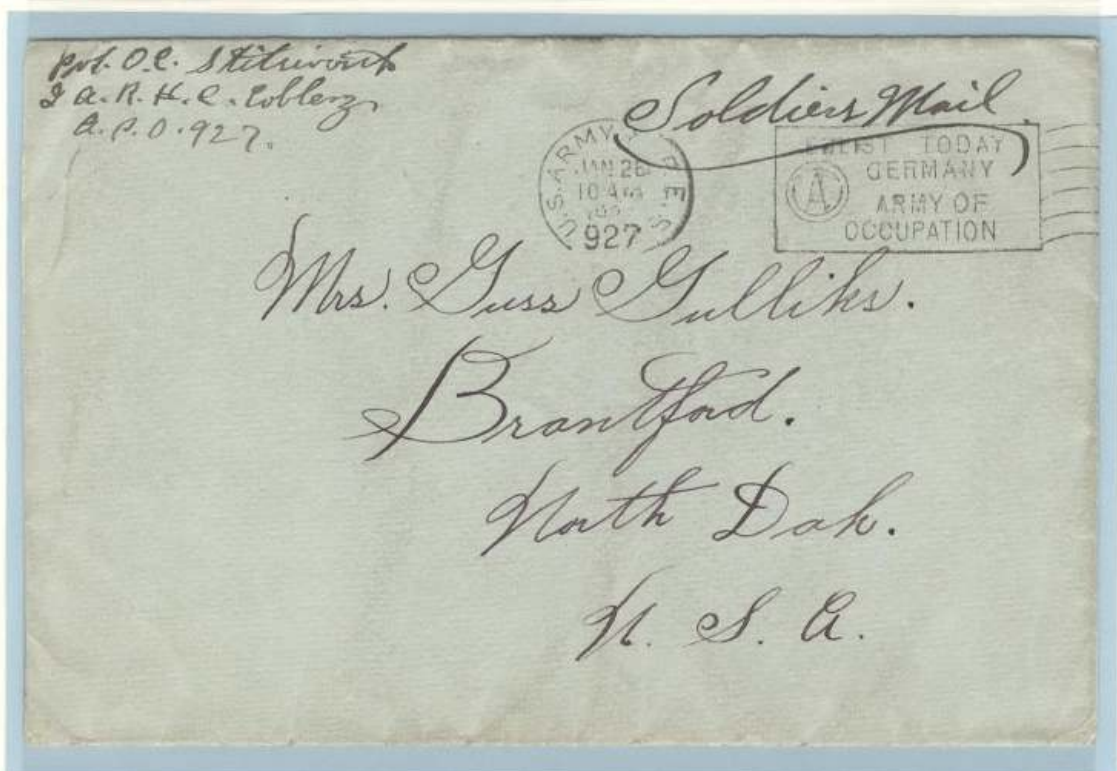 Pvt. O.C. Stilsworth
I A.R.H.C. Coblenz
A.P.O. 927.
Soldiers Mail.
U.S. ARMY P.E.S.
JAN 26
10 AM
927
ENLIST TODAY
GERMANY
A
ARMY OF
OCCUPATION
Mrs. Guss Gulliks.
Brantford.
North Dak.
U. S. A.